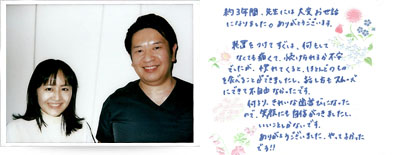 約3年間、先生には大変お世話
になりました。ありがとうございます。
装置をつけてすぐは、何もして
なくても痛くて、続けられるか不安
でしたが、慣れてくると、ほとんどのもの
を食べることができましたし、話し方もスムーズ
にできて不自由なかったです。
何より、きれいな歯並びになった
ので、笑顔にも自信がつきましたし、
いいことしかないです。
ありがとうございました。やってよかった
です!!